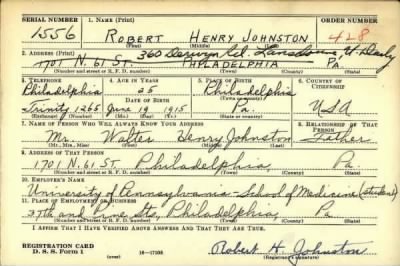 SERIAL NUMBER 1. NAME (Print) ORDER NUMBER
1556 ROBERT HENRY JOHNSTON 428
(First) (Middle) (Last)
2. ADDRESS (Print) 360 Rd. Lansdowne U. Darby
1701 N. 61 ST. PHILADELPHIA PA.
(Number and street or R. F. D. number) (Town) (County) (State)
3. TELEPHONE 4. AGE IN YEARS 5. PLACE OF BIRTH 6. COUNTRY OF CITIZENSHIP
Philadelphia 25 Philadelphia
DATE OF BIRTH (Town or county)
Trinity 1265 June 19 1915 Pa. USA
(Exchange) (Number) (Mo.) (Day) (Yr.) (State or country)
7. NAME OF PERSON WHO WILL ALWAYS KNOW YOUR ADDRESS 8. RELATIONSHIP OF THAT PERSON
Mr. Walter Henry Johnston Father
(Mr., Mrs., Miss) (First) (Middle) (Last)
9. ADDRESS OF THAT PERSON
1701 N. 61 ST. Philadelphia, Pa
(Number and street or R. F. D. number) (Town) (County) (State)
10. EMPLOYER'S NAME
University of Pennsylvania - School of Medicine (student)
11. PLACE OF EMPLOYMENT OR BUSINESS
37th and Pine Sts, Philadelphia, Pa
(Number and street or R. F. D. number) (Town) (County) (State)
I AFFIRM THAT I HAVE VERIFIED ABOVE ANSWERS AND THAT THEY ARE TRUE.
REGISTRATION CARD
D. S. S. FORM 1 16-17105 Robert H. Johnston
(Registrant's signature)